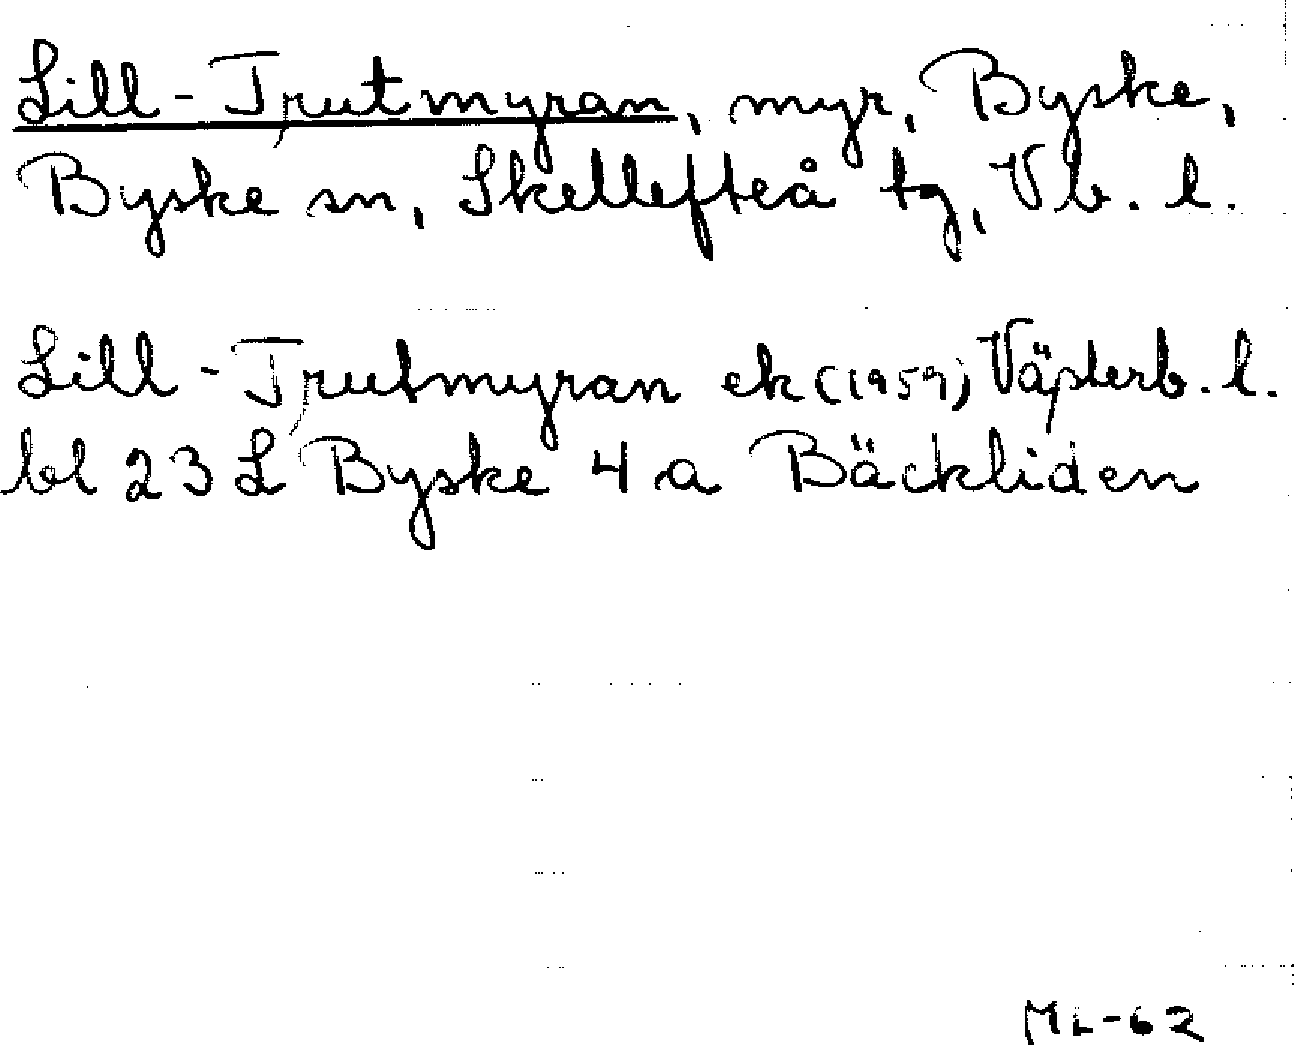 Lill-Trutmyran, myr, Byske,
Byske sn, Skellefteå tg, Vb. l.
Lill-Trutmyran ek (1959) Västerb. l.
bl 23 L Byske 4 a Bäckliden
ML-62